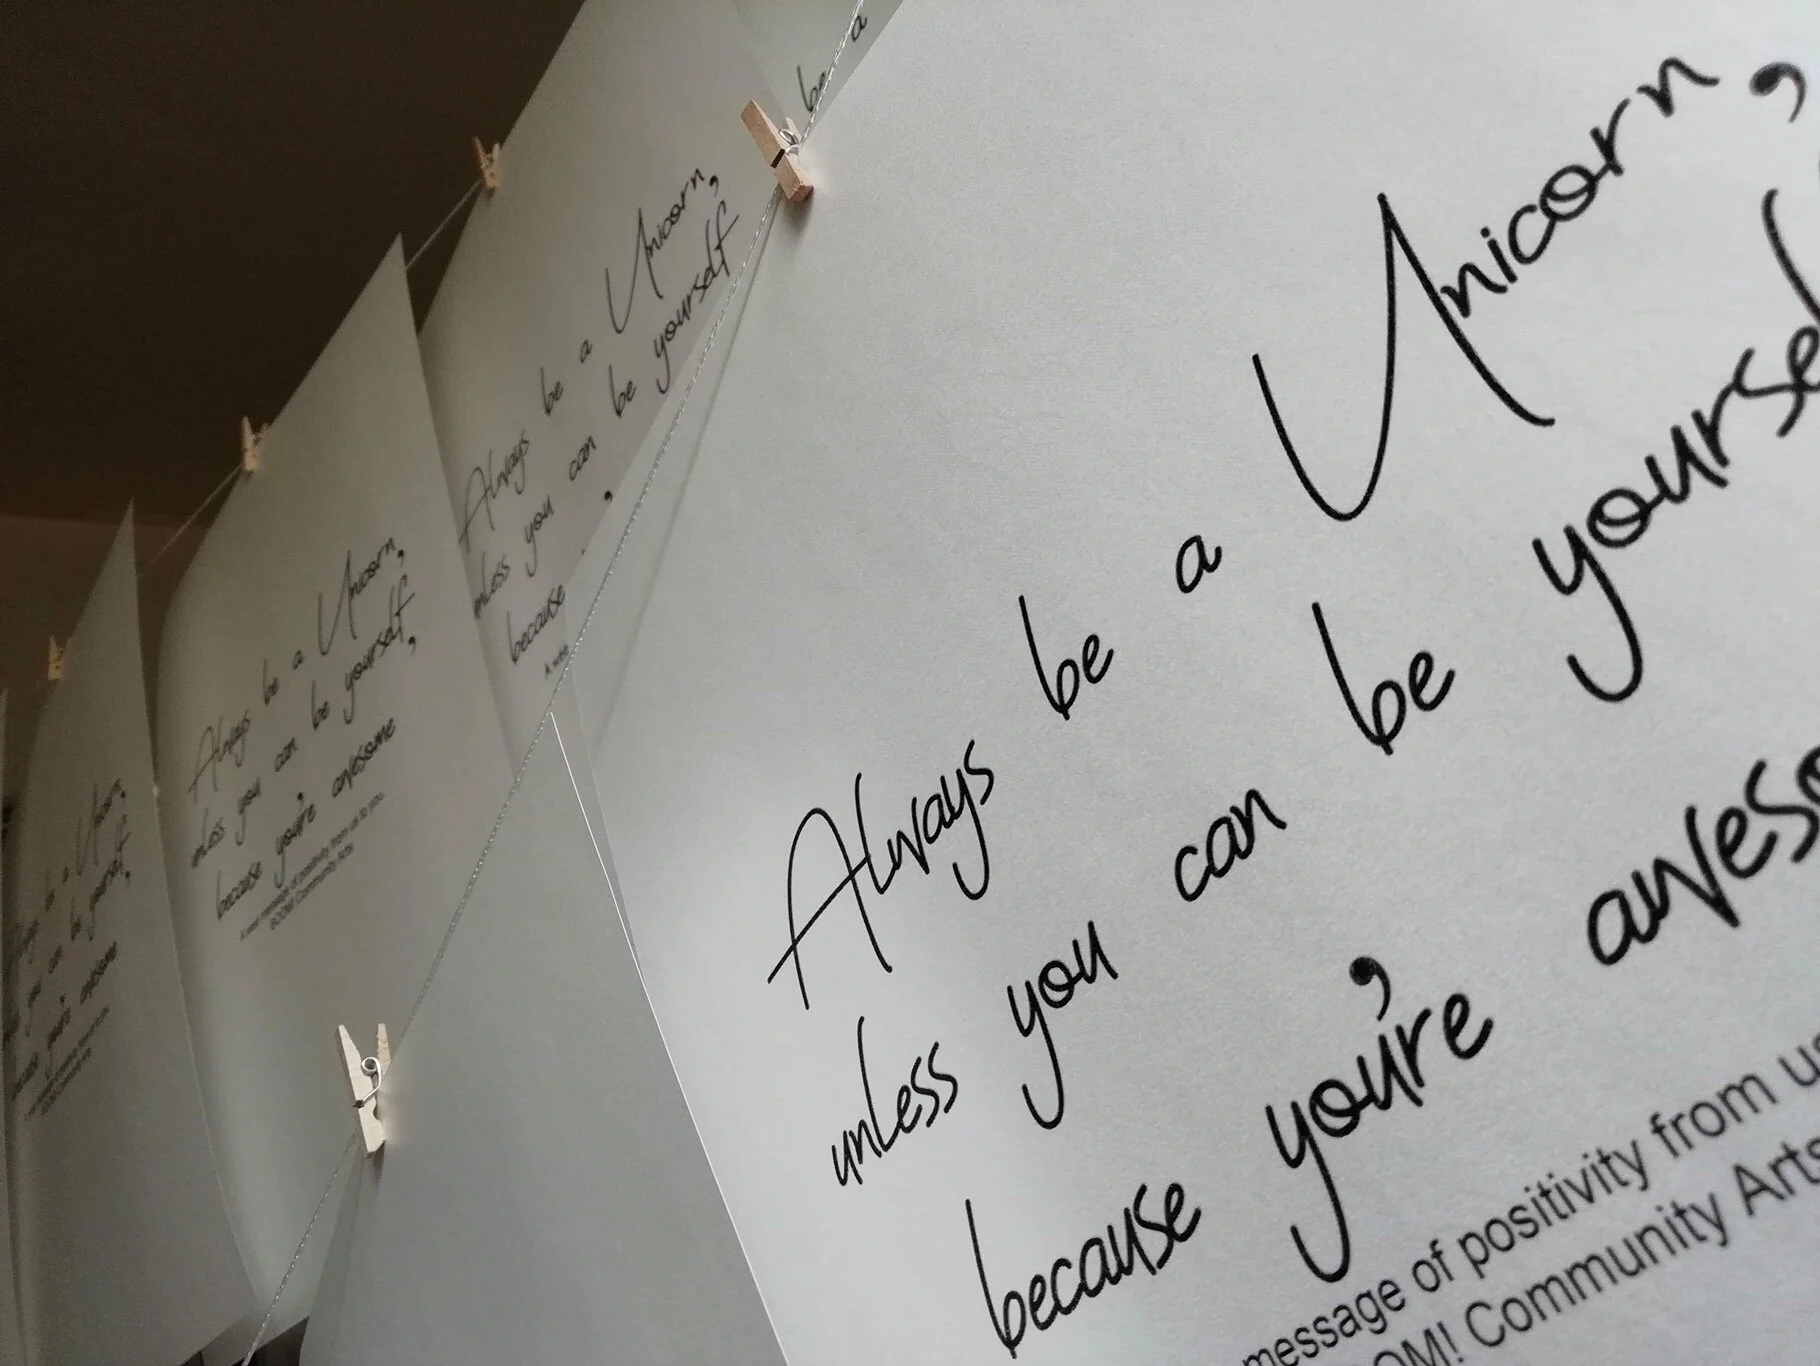 Always be a Unicorn,
unless you can be yourself,
because you're awesome
message of positivity from us
Community Arts
be a
Always be a Unicorn,
unless you can be yourself
,
because
Always be a Unicorn,
unless you can be yourself,
because you're awesome
A message of positivity from us to you
Community Arts